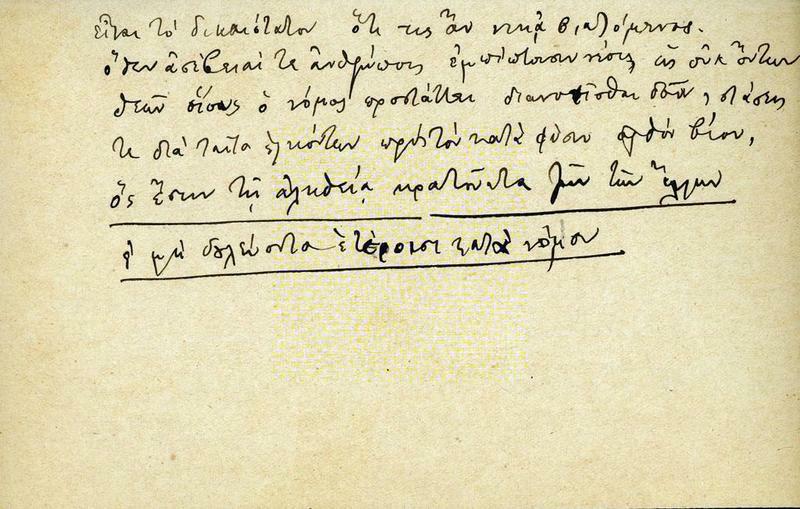 εἶναι τὸ δικαιότατον ὅτι τις ἂν νικᾷ βιαζόμενος.
ὅθεν ἀσέβειαί τε ἀνθρώποις ἐμπίπτουσιν νέοις, ὡς οὐκ ὄντων
θεῶν οἵους ὁ νόμος προστάττει διανοεῖσθαι δεῖν, στάσεις
τε διὰ ταῦτα ἑλκόντων πρὸς τὸν κατὰ φύσιν ὀρθὸν βίον,
ὅς ἔστιν τῇ ἀληθείᾳ κρατοῦντα ζῆν τῶν ἄλλων
καὶ μὴ δουλεύοντα ἑτέροισι κατὰ νόμον